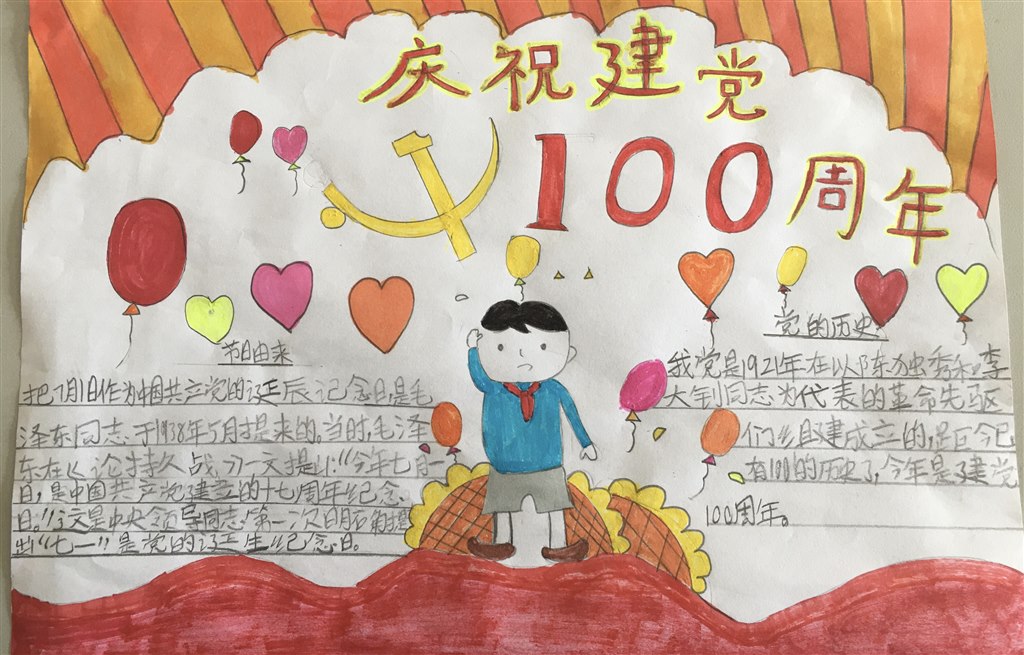 庆祝建党
100周年
节日由来
把7月1日作为中国共产党的诞辰记念日,是毛
泽东同志于1938年5月提来的。当时,毛泽
东在《论持久战》一文提出:“今年七月一
日,是中国共产党建立的十七周年纪念
日。”这是中央领导同志第一次明确提
出“七一”是党的诞生纪念日。
党的历史
我党是1921年在以陈独秀和李
大钊同志为代表的革命先驱
们组建成立的,距今已
有100的历史了,今年是建党
100周年。